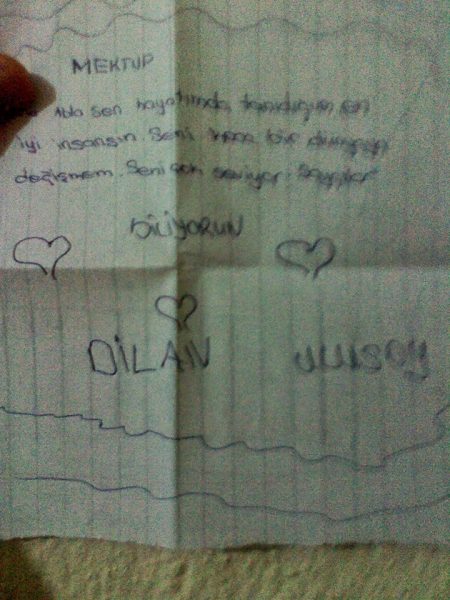 MEKTUP
Abla sen hayatımda tanıdığım en
iyi insansın. Seni bir dünyaya
değişmem. Seni çok seviyor. Saygılar
BİLİYORUN
DİLAN ULUSOY